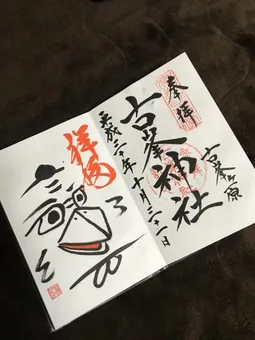 奉拝
古峯ヶ原
古峯神社
平成三十年十月三十一日
祥福